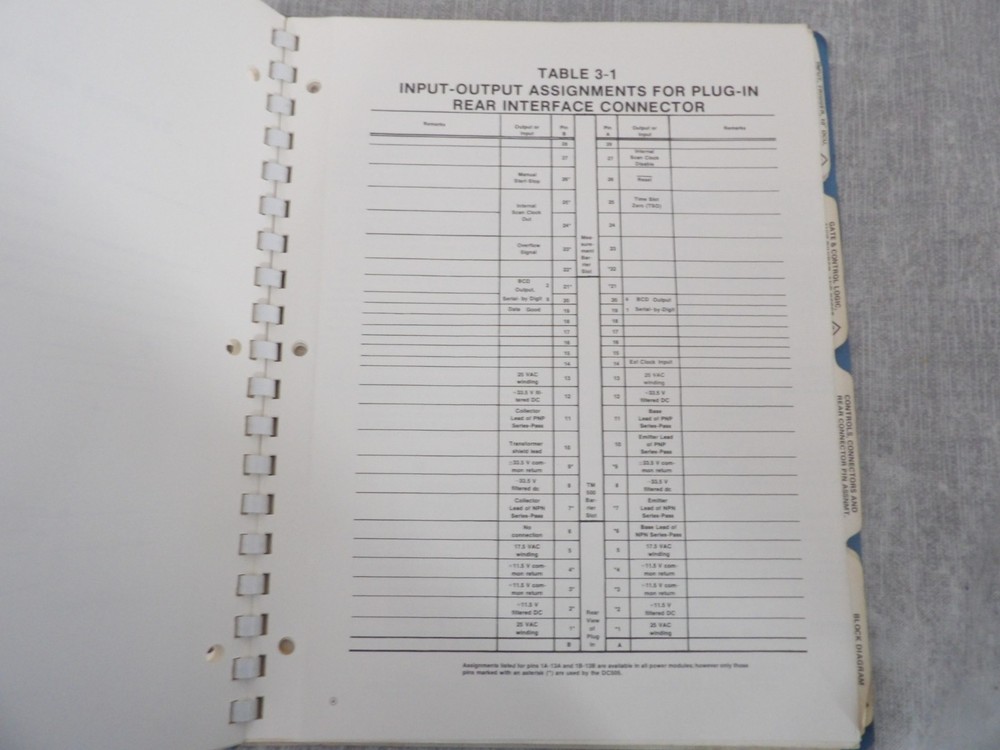 TABLE 3-1
INPUT-OUTPUT ASSIGNMENTS FOR PLUG-IN
REAR INTERFACE CONNECTOR
Remarks Output or Input Pin B Pin A Output or Input Remarks
28 28
27 27 Internal Scan Clock Disable
Manual Start-Stop 26* 26 Reset
Internal Scan Clock Out 25* 25 Time Slot Zero (TSO)
24* 24
Overflow Signal 23* 23
Mea-
sure-
ment
Bar-
rier
Slot
22* *22
BCD Output, Serial-by Digit 2 21* *21
8 20 20 4 BCD Output
Data Good 19 19 1 Serial-by-Digit
18 18
17 17
16 16
15 15
14 14 Ext Clock Input
25 VAC winding 13 13 25 VAC winding
+33.5 V filtered DC 12 12 +33.5 V filtered DC
Collector Lead of PNP Series-Pass 11 11 Base Lead of PNP Series-Pass
Transformer shield lead 10 10 Emitter Lead of PNP Series-Pass
±33.5 V common return 9* *9 ±33.5 V common return
-33.5 V filtered dc 8 8 -33.5 V filtered dc
TM
500
Bar-
rier
Slot
Collector Lead of NPN Series-Pass 7* *7 Emitter Lead of NPN Series-Pass
No connection 6 *6 Base Lead of NPN Series-Pass
17.5 VAC winding 5 5 17.5 VAC winding
+11.5 V common return 4* *4 +11.5 V common return
+11.5 V common return 3* *3 +11.5 V common return
+11.5 V filtered DC 2* *2 +11.5 V filtered DC
25 VAC winding 1* *1 25 VAC winding
Rear
View
of
Plug
in
B A
Assignments listed for pins 1A-13A and 1B-13B are available in all power modules; however only those
pins marked with an asterisk (*) are used by the DC505.
GATE & CONTROL LOGIC,
CONTROLS, CONNECTORS AND
REAR CONNECTOR PIN ASGNMT.
BLOCK DIAGRAM